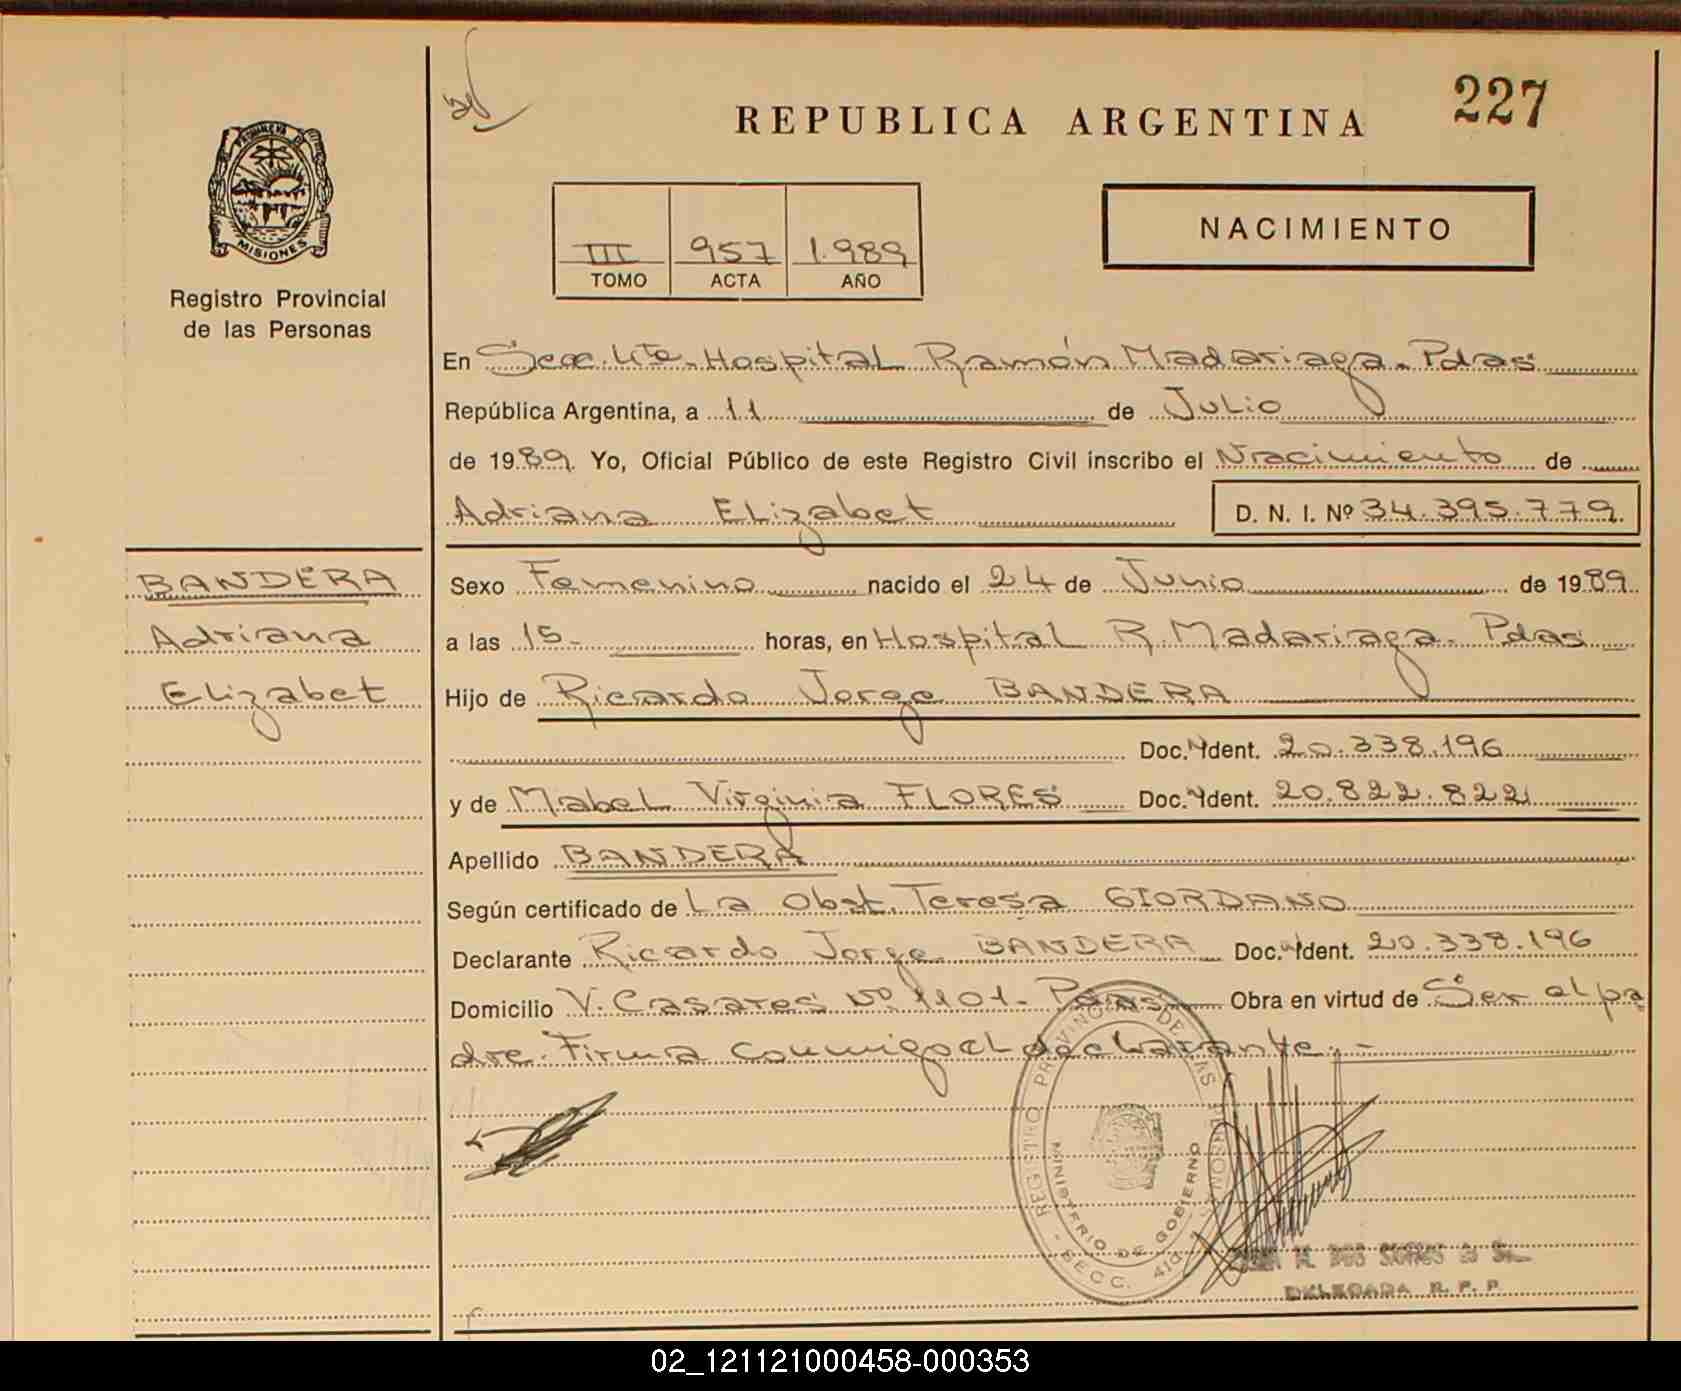 227
REPUBLICA ARGENTINA
MISIONES
Registro Provincial
de las Personas
III 957 1.989
TOMO ACTA AÑO
NACIMIENTO
En Secc. 4ta. Hospital Ramón Madariaga. Pdas
República Argentina, a 11 de Julio
de 1989. Yo, Oficial Público de este Registro Civil inscribo el Nacimiento de
Adriana Elizabet D. N. I. Nº 34.395.779.
BANDERA
Adriana
Elizabet
Sexo Femenino nacido el 24 de Junio de 1989.
a las 15- horas, en Hospital R. Madariaga. Pdas
Hijo de Ricardo Jorge BANDERA
Doc. Ident. 20.338.196
y de Mabel Virginia FLORES Doc. Ident. 20.822.822
Apellido BANDERA
Según certificado de La Obst. Teresa GIORDANO
Declarante Ricardo Jorge BANDERA Doc. Ident. 20.338.196
Domicilio V. Casares Nº 1101- Pdas Obra en virtud de Ser el pa
dre. Firma conmigo el declarante. -
REGISTRO PROVINCIAL DE LAS PERSONAS
MINISTERIO DE GOBIERNO
SECC. 4ta
DELEGADA R. P. P.
02_121121000458-000353